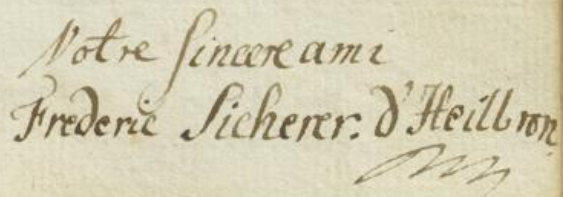 Votre sincere ami
Frederic Sicherer. d'Heilbron